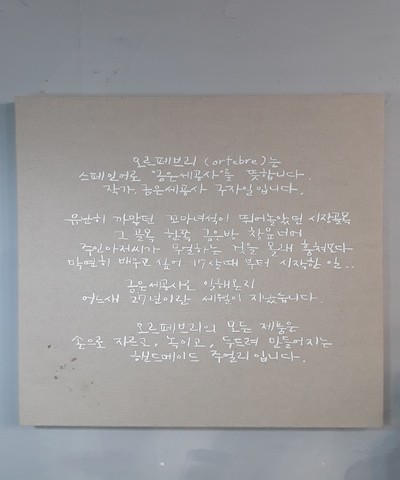 오르페브리 (orfebre)는
스페인어로 "금은세공사"를 뜻합니다.
작가. 금은세공사 주자일입니다.
유난히 까맣던 꼬마녀석이 뛰어놀았던 시장골목
그 골목 한쪽 금은방 창문너머
주인아저씨가 무얼하는 걸을 몰래 훔쳐보다
막연히 배우고 싶어 17살때 부터 시작한 일..
금은세공사로 일해온지
어느새 27년이란 세월이 지났습니다.
오르페브리의 모든 제품은
손으로 자르고, 녹이고, 두드려 만들어지는
핸드메이드 주얼리 입니다.